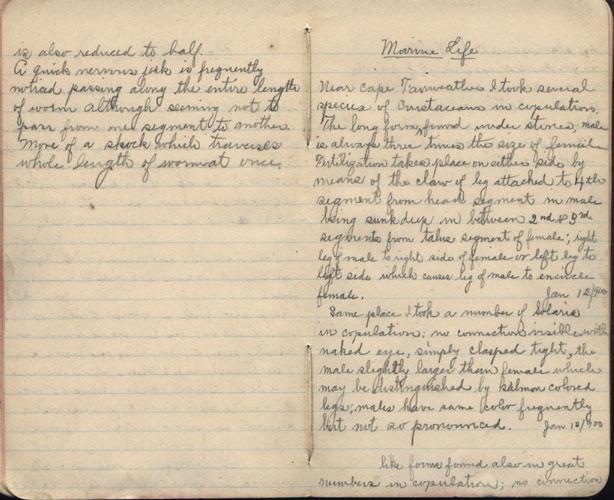 is also reduced to half.
A quick nervous jerk is frequently
noticed passing along the entire length
of worm although seeming not to
pass from one segment to another
More of a shock which traverses
whole length of worm at once
Marine Life
Near Cape Fairweather I took several
species of Crustaceans in copulation.
The long form, found under stones, male
is always three times the size of female
Fertilization takes place on either side by
means of the claw of leg attached to 4th
segment from head segment in male
being sunk deep in between 2nd & 3rd
segments from segment of female; right
leg of male to right side of female or left leg to
left side which causes leg of male to encircle
female. Jan 12/900
Same place I took a number of
in copulation; no connection visible with
naked eye, simply clasped tight, the
male slightly larger than female which
may be distinguished by salmon colored
legs; males have same color frequently
but not so pronounced. Jan 12/900
like forms found also in great
numbers in copulation; no connection